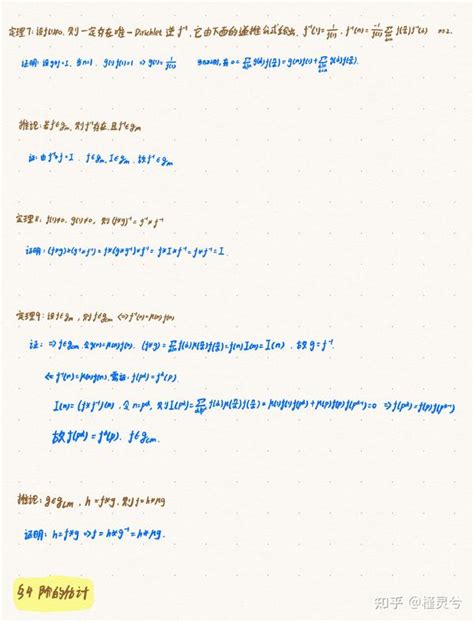 定理7: 设f(1)≠0, 则一定存在唯一Dirichlet逆f⁻¹, 它由下面的递推公式给出, f⁻¹(1)=1/f(1), f⁻¹(n)=-1/f(1) ∑ f(n/d)f⁻¹(d) n≥2.
证明: 设g*f=I, 当n=1, g(1)f(1)=1 ⇒ g(1)=1/f(1) 当n≥2时, 有0=∑g(d)f(n/d)=g(n)f(1)+∑g(d)f(n/d).
推论: 若f∈gm, 则f⁻¹存在, 且f⁻¹∈gm
证: 由f⁻¹*f=I, f∈gm, I∈gm, 故f⁻¹∈gm
定理8: f(1)≠0, g(1)≠0, 则(f*g)⁻¹=g⁻¹*f⁻¹
证明: (f*g)*(g⁻¹*f⁻¹)=f*(g*g⁻¹)*f⁻¹=f*I*f⁻¹=f*f⁻¹=I.
定理9: 设f∈gm, 则f∈gcm ⇔ f⁻¹(n)=μ(n)f(n)
证: ⇒ f∈gcm, 令g(n)=μ(n)f(n), (f*g)=∑f(d)μ(n/d)f(n/d)=f(n)I(n)=I(n), 故g=f⁻¹.
⇐ f⁻¹(n)=μ(n)f(n), 需证: f(pᵏ)=fᵏ(p).
I(n)=(f*f⁻¹)(n), 令n=pᵏ, 则I(pᵏ)=∑f(d)μ(n/d)f(n/d)=μ(1)f(1)f(pᵏ)+μ(p)f(p)f(pᵏ⁻¹)=0 ⇒ f(pᵏ)=f(p)f(pᵏ⁻¹)
故f(pᵏ)=fᵏ(p), f∈gcm.
推论: g∈gcm, h=f*g, 则f=h*μg
证明: h=f*g ⇒ f=h*g⁻¹=h*μg
§4 阶的估计
知乎 @槿灵兮